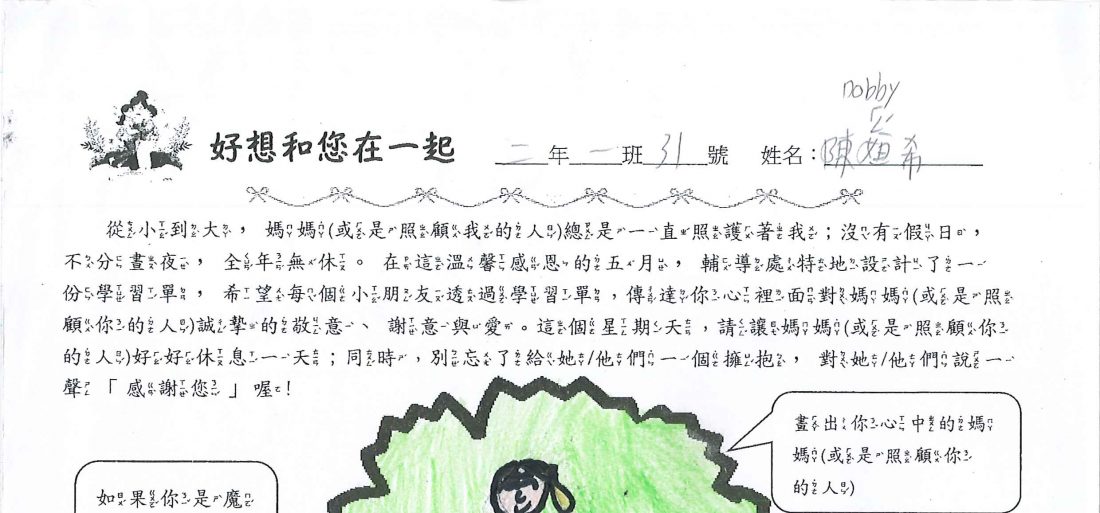 nobby
好想和您在一起 二年一班31號 姓名：陳 希
從小到大，媽媽(或是照顧我的人)總是一直照護著我；沒有假日，
不分晝夜，全年無休。在這溫馨感恩的五月，輔導處特地設計了一
份學習單，希望每個小朋友透過學習單，傳達你心裡面對媽媽(或是照
顧你的人)誠摯的敬意、謝意與愛。這個星期天，請讓媽媽(或是照顧你
的人)好好休息一天；同時，別忘了給她/他們一個擁抱，對她/他們說一
聲「感謝您」喔！
畫出你心中的媽
媽(或是照顧你
的人)
如果你是魔